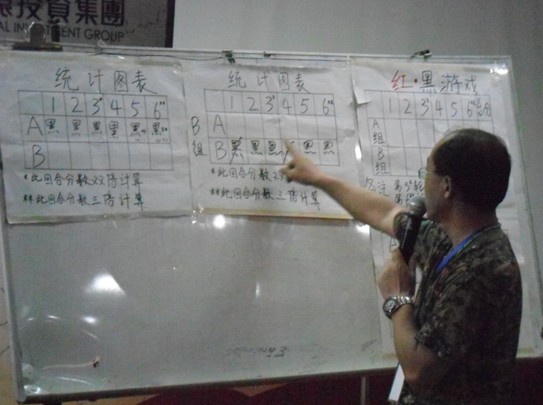 投資集團
AL INVESTMENT GROUP
统计图表
1 2 3* 4 5 6**
A 黑 黑 黑 黑 黑 黑
B
*此回合分数双倍计算
**此回合分数三倍计算
统计图表
1 2 3* 4 5 6**
B组
A
B 黑 黑 黑 黑 黑
*此回合分数
**此回合分数三倍计算
红·黑游戏
1 2 3* 4 5 6**
A组
B组